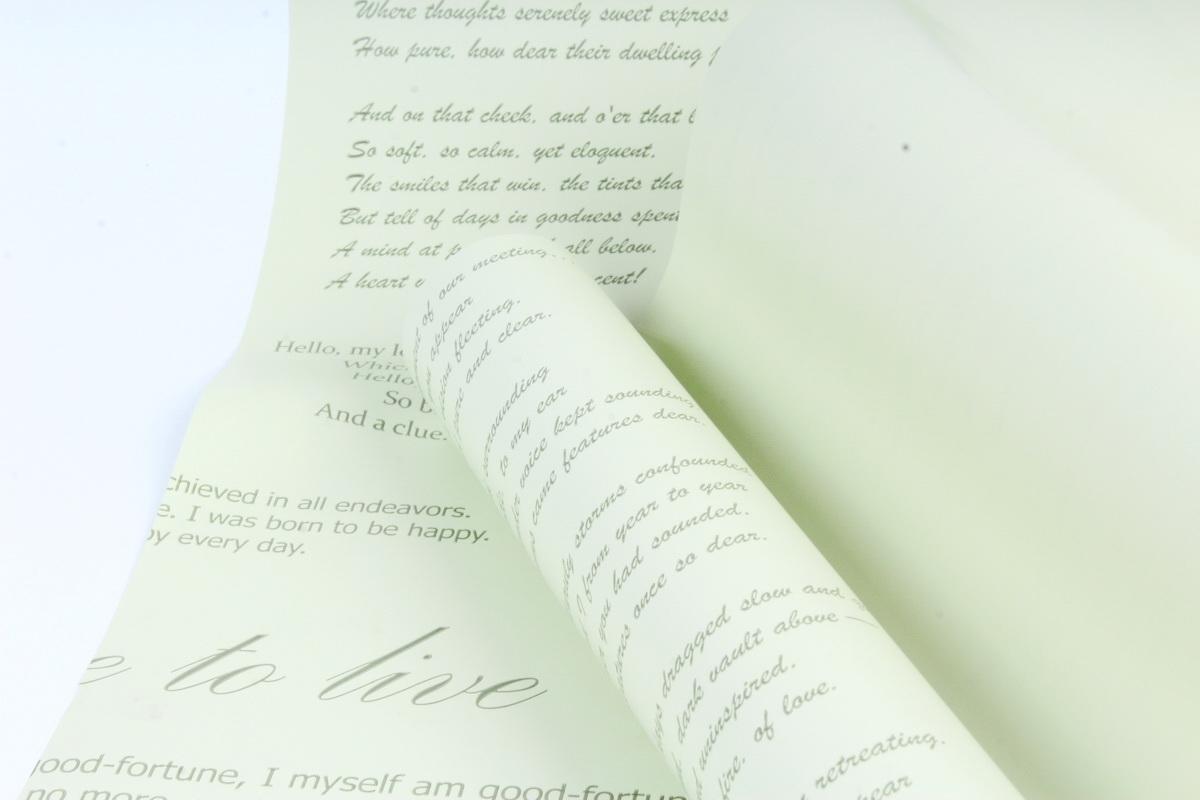 Where thoughts serenely sweet express
How pure, how dear their dwelling
And on that cheek, and o'er that
So soft, so calm, yet eloquent,
The smiles that win, the tints tha
But tell of days in goodness spent
A mind at all below,
A heart cent!
Hello, my
Hello
So b
And a clue.
chieved in all endeavors.
e. I was born to be happy.
by every day.
e to live
ood-fortune, I myself am good-fortun
no more
of our meeting.
appear
fleeting.
and clear.
surrounding
to my ear
voice kept sounding
came features dear.
storms confounded
I from year to year
you had sounded.
tures once so dear.
dragged slow and
dark vault above
uninspired.
fire, of love.
retreating.